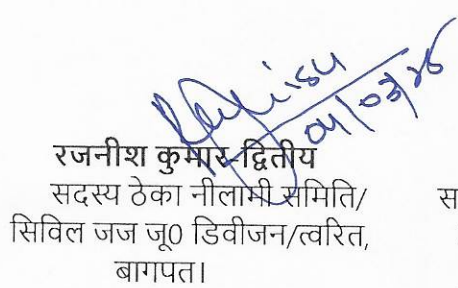 Rajnish
04/03/25
रजनीश कुमार-द्वितीय
सदस्य ठेका नीलामी समिति/
सिविल जज जू0 डिवीजन/त्वरित,
बागपत।
स